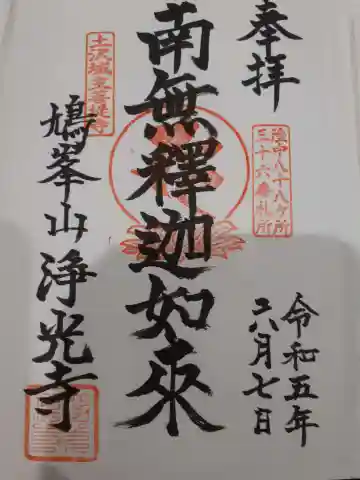 奉拝
陸中八十八ヶ所
三十六番札所
令和五年
六月七日
南無釋迦如来
土沢城主菩提寺
鳩峯山浄光寺